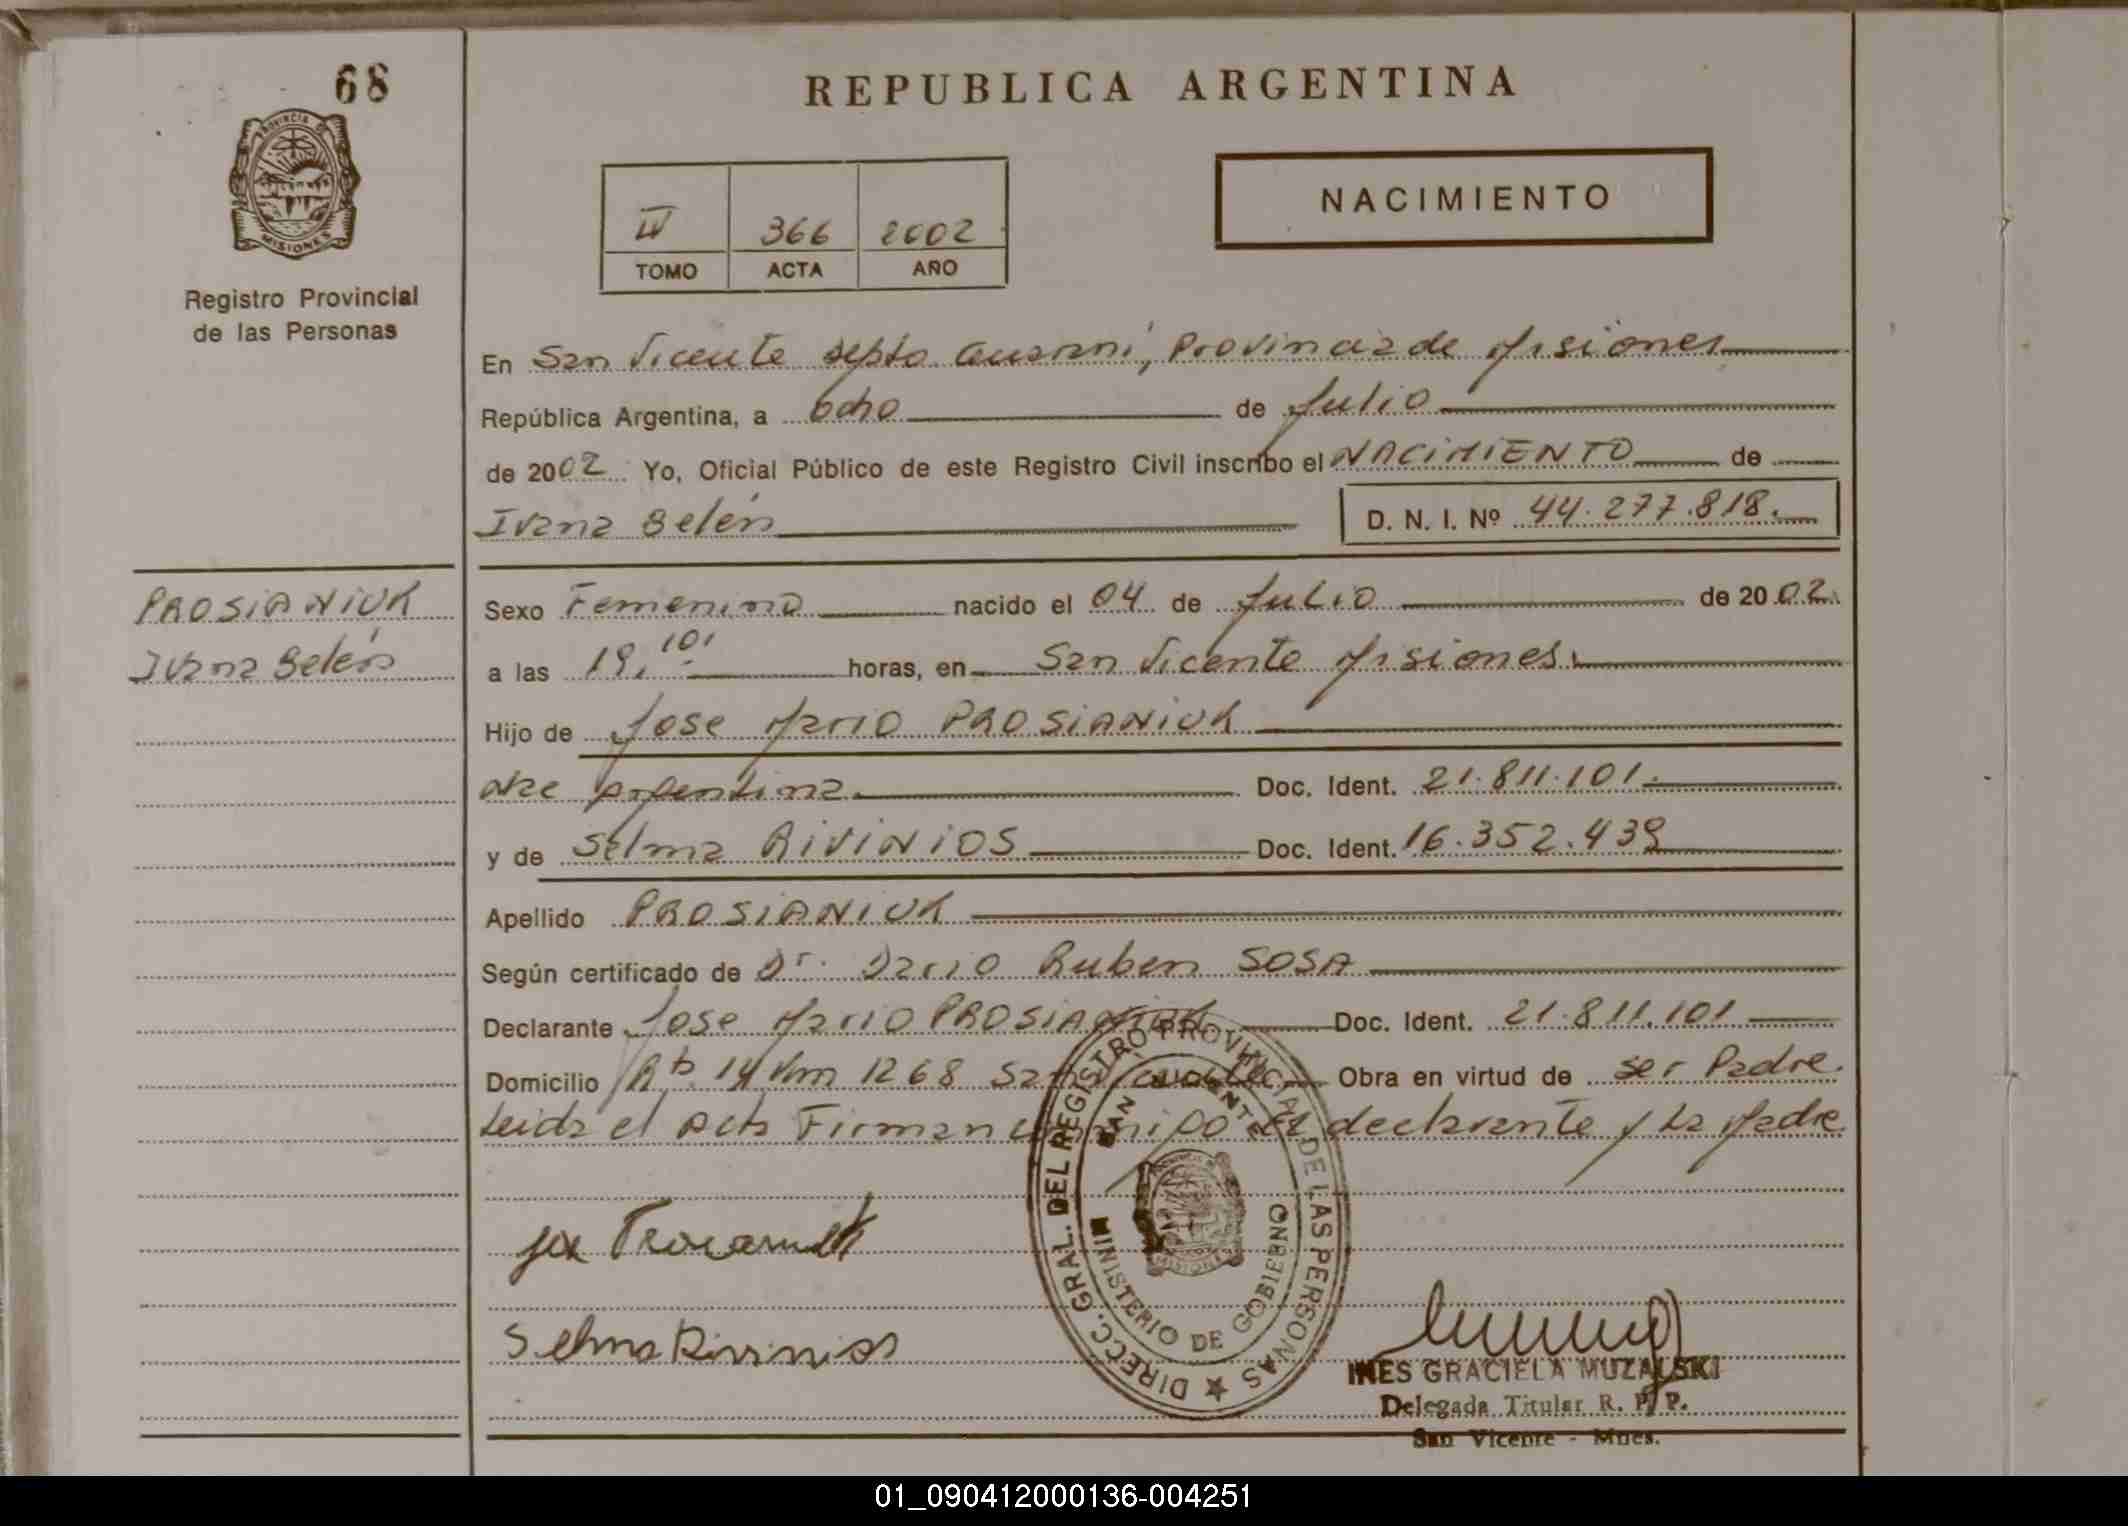 68
REPUBLICA ARGENTINA
PROVINCIA DE
MISIONES
Registro Provincial
de las Personas
NACIMIENTO
IV 366 2002
TOMO ACTA AÑO
En San Vicente depto Guarani, Provincia de Misiones
República Argentina, a ocho de Julio
de 2002 Yo, Oficial Público de este Registro Civil inscribo el NACIMIENTO de
Ivana Belén D. N. I. Nº 44.277.818.
PROSIANIUK
Ivana Belén
Sexo Femenino nacido el 04 de Julio de 2002
a las 19,10' horas, en San Vicente Misiones.
Hijo de Jose Mario PROSIANIUK
Nac Argentina Doc. Ident. 21.811.101.
y de Selma RIVINIOS Doc. Ident. 16.352.439
Apellido PROSIANIUK
Según certificado de Dr. Dario Ruben SOSA
Declarante Jose Mario PROSIANIUK Doc. Ident. 21.811.101
Domicilio Rta 14 Km 1268 San Vicente Obra en virtud de ser Padre.
Leida el Acta Firman conmigo El declarante y La Madre
DIRECC. GRAL. DEL REGISTRO PROVINCIAL DE LAS PERSONAS
SAN VICENTE
MINISTERIO DE GOBIERNO
MISIONES
Selma Rivinios
INES GRACIELA MUZALSKI
Delegada Titular R. P. P.
San Vicente - Mnes.
01_090412000136-004251